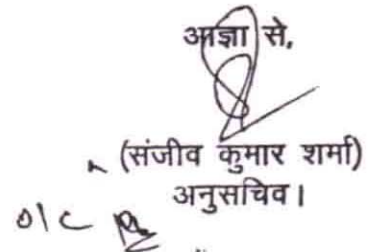 आज्ञा से,
(संजीव कुमार शर्मा)
अनुसचिव।
o/c